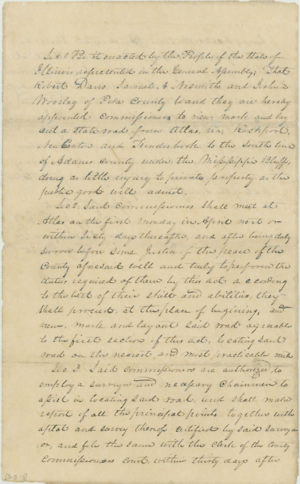 Sec 1 Be it enacted by the People of the State of
Illinois represented in the General Assembly, That
Robert Davis Samuel A Nesmith and John
Worsley of Pike County be and they are hereby
appointed Commissioners to view mark and lay
out a state road from Atlas, via, Rockport,
New Canton and Kinderhook to the South line
of Adams County under the Mississippi Bluffs,
doing as little injury to private property as the
public good will admit.
Sec 2. Said Commissioners shall meet at
Atlas on the first Monday in April next or
within sixty days thereafter, and after being duly
sworn before some Justice of the peace of the
County aforesaid well and truly to perform the
duties required of them by this act according
to the best of their skill and abilities, they
shall proceed, at the place of beginning, and
view, mark and lay out said road agreeable
to the first section of this act, locating said
road on the nearest and most practicable
Sec. 3 Said Commissioners are authorized to
employ a surveyor and necessary Chainmen to
assist in locating said road and shall make
report of all the principal points together with
a plat and survey thereof certified by said surveyor
or, and file the same with the Clerk of the County
Commissioners court within thirty days after